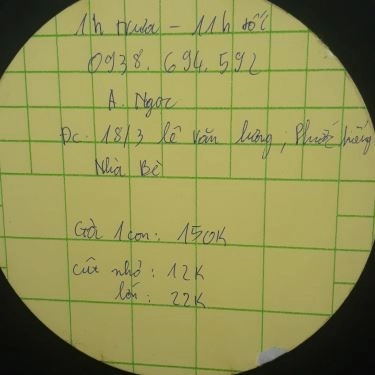 1h trưa - 11h tối
0938.694.592
A. Ngọc
Đc: 18/3 lê văn lương, Phước kiểng
Nhà Bè
Gà 1 con: 150K
cút nhỏ: 12K
lớn: 22K